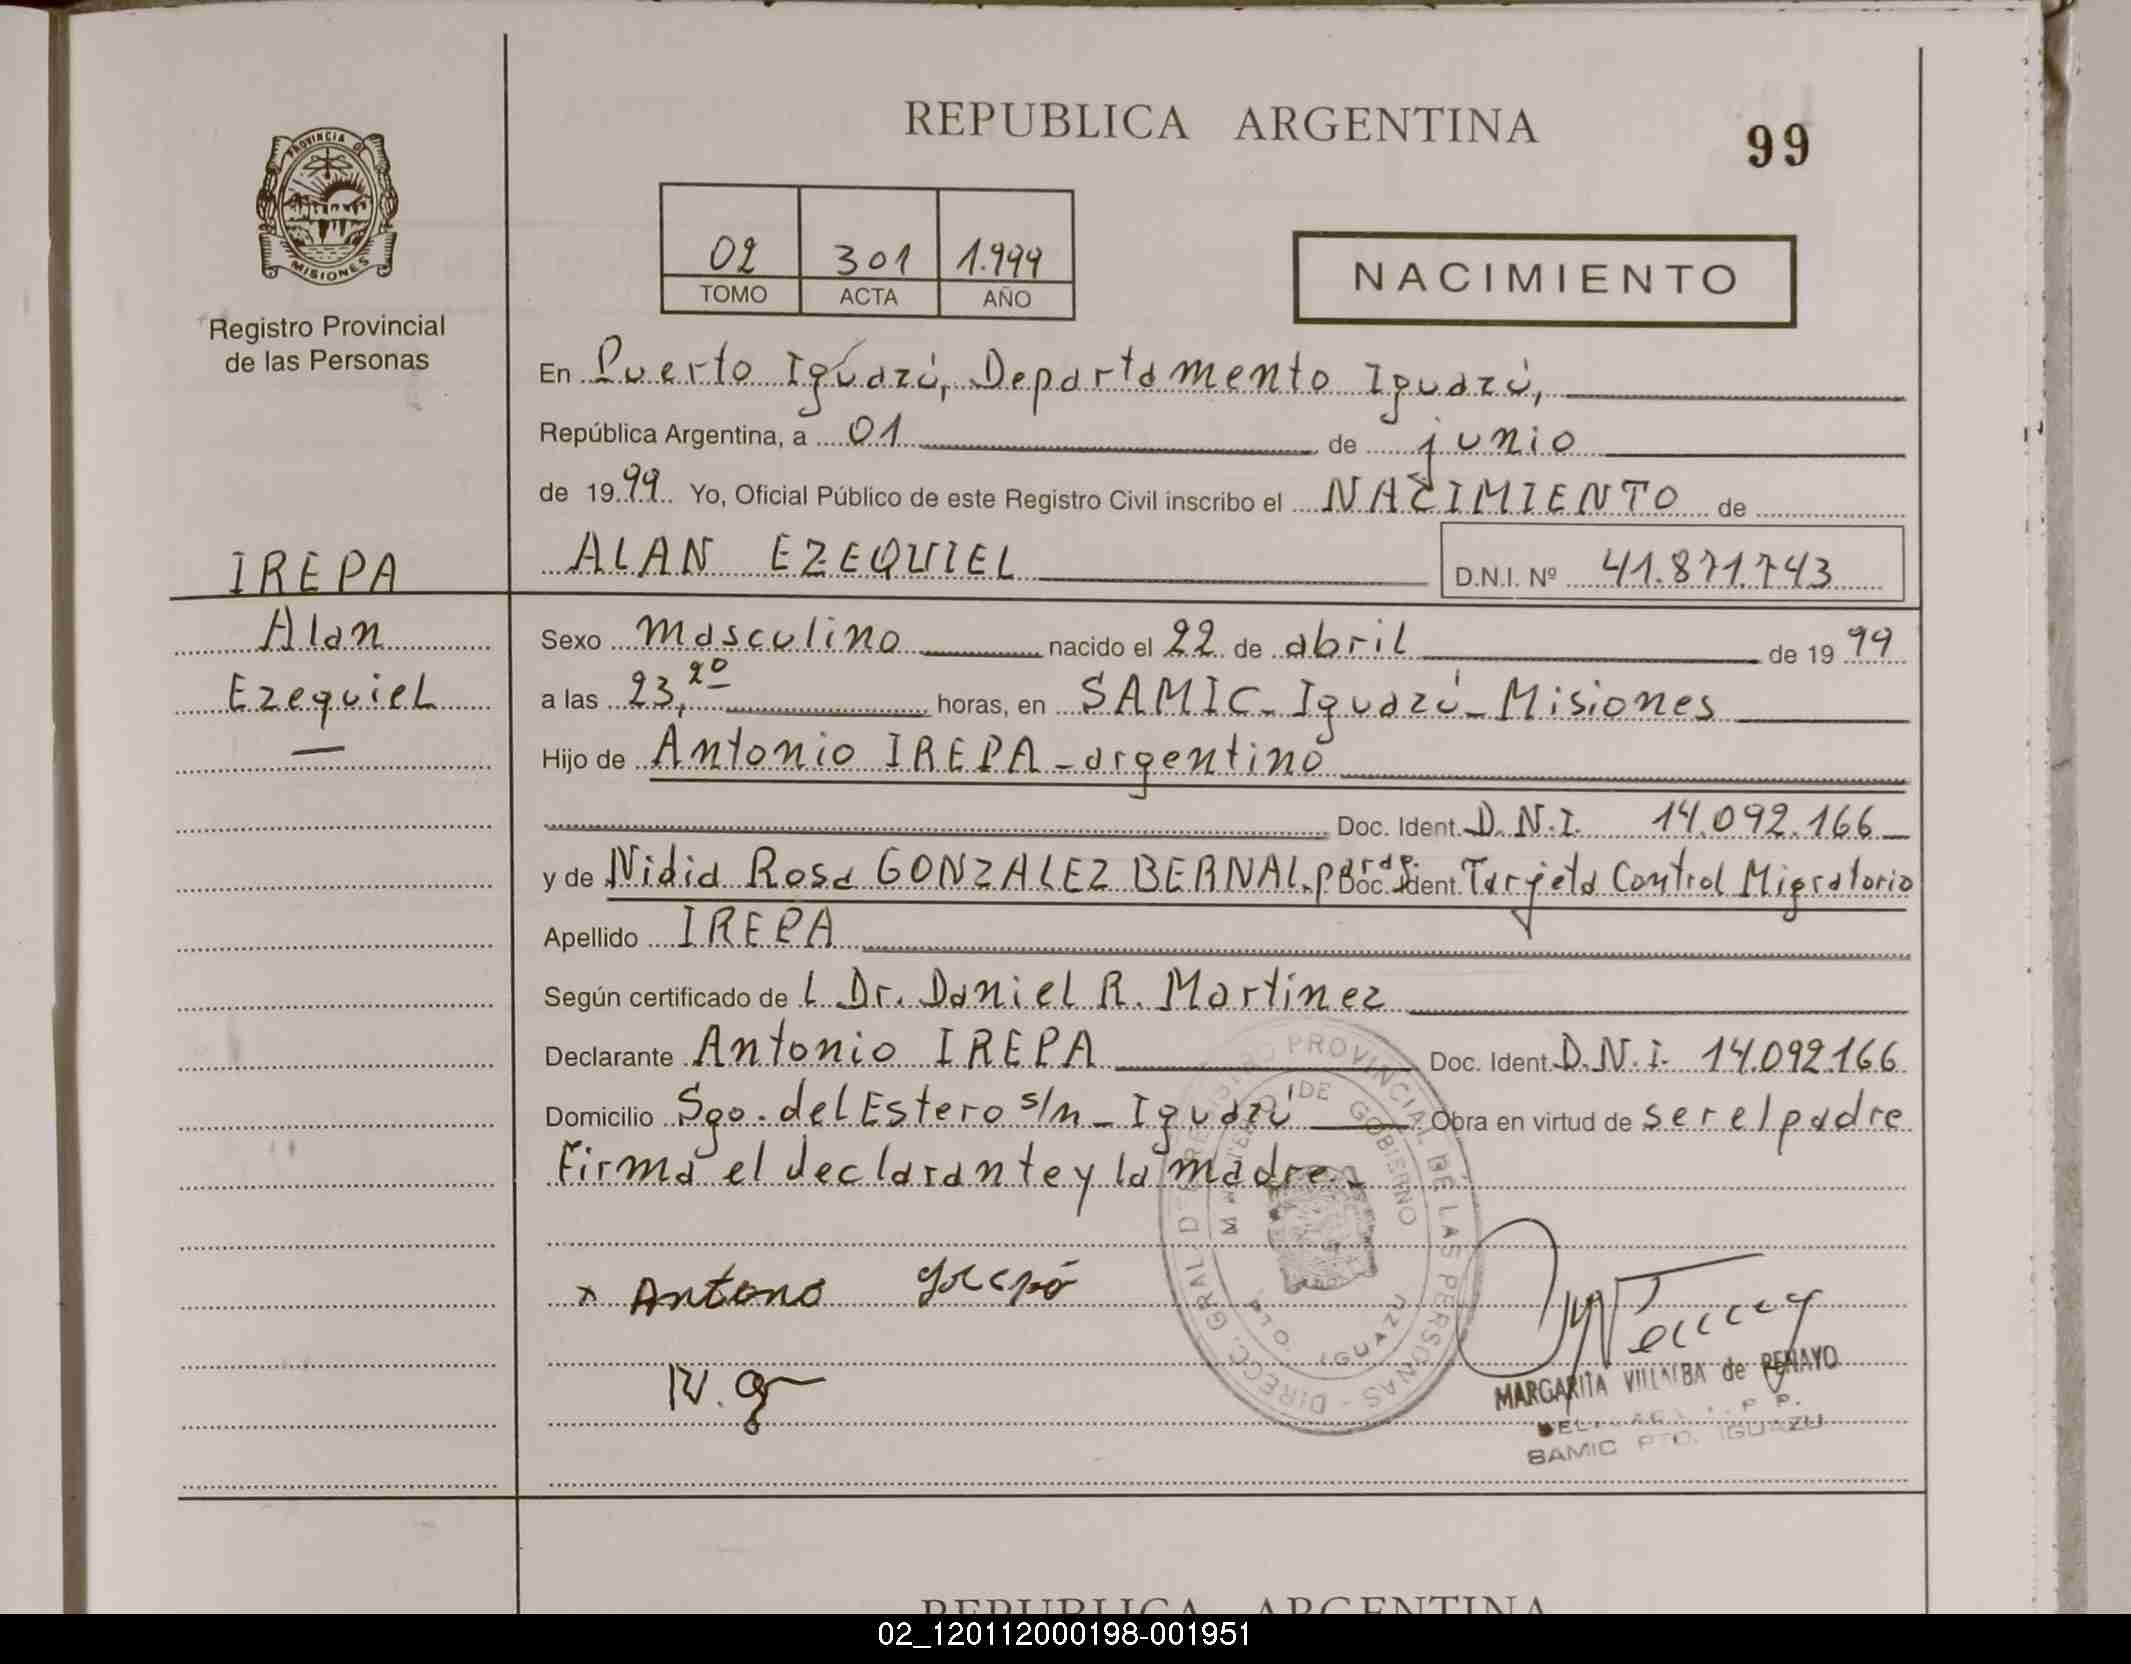 REPUBLICA ARGENTINA
99
PROVINCIA DE
MISIONES
Registro Provincial
de las Personas
02 301 1.999
TOMO ACTA AÑO
NACIMIENTO
En Puerto Iguazú, Departamento Iguazú,
República Argentina, a 01 de junio
de 1999 Yo, Oficial Público de este Registro Civil inscribo el NACIMIENTO de
ALAN EZEQUIEL D.N.I. Nº 41.871.743
IREPA
Alan
Ezequiel
Sexo masculino nacido el 22 de abril de 1999
a las 23,20 horas, en SAMIC - Iguazú - Misiones
Hijo de Antonio IREPA - argentino
Doc. Ident. D.N.I. 14.092.166
y de Nidia Rosa GONZALEZ BERNAL. Doc. Ident. Tarjeta Control Migratorio
Apellido IREPA
Según certificado de L Dr. Daniel R. Martinez
Declarante Antonio IREPA Doc. Ident. D.N.I. 14.092.166
Domicilio Sgo. del Estero s/n - Iguazú Obra en virtud de ser el padre
Firma el declarante y la madre.-
x Antono
N. g
DIRECC. GRAL. DE REGISTRO PROVINCIAL DE LAS PERSONAS
MINISTERIO DE GOBIERNO
IGUAZU
MARGARITA VILLALBA de PENAYO
SAMIC PTO. IGUAZU
REPUBLICA ARGENTINA
02_120112000198-001951